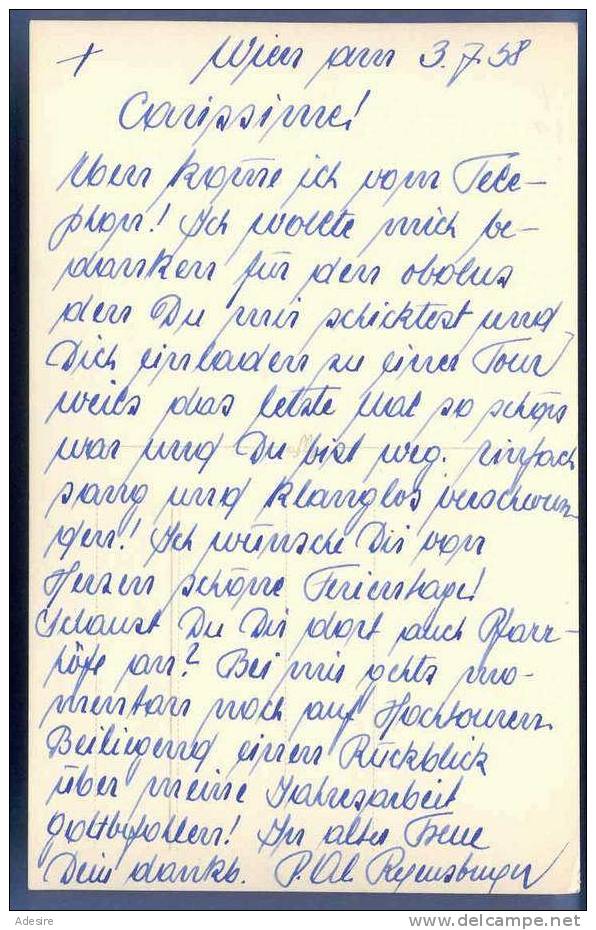 + Wien am 3.7.58
Carissime!
Eben komme ich vom Tele-
phon! Ich wollte mich be-
danken für den obolus
den Du mir schicktest und
Dich einladen zu einer Tour
weils das letzte Mal so schön
war und Du bist weg. Einfach
sang und klanglos verschwun-
den! Ich wünsche Dir von
Herzen schöne Ferientage!
Schaust Du Dir dort auch Pfarr-
höfe an? Bei mir gehts mo-
mentan noch auf Hochtouren.
Beiliegend einen Rückblick
über meine Jahresarbeit
gottbefohlen! In alter Treue
Dein dankb. P. Al. Regensburger
Adesire
delcampe.net